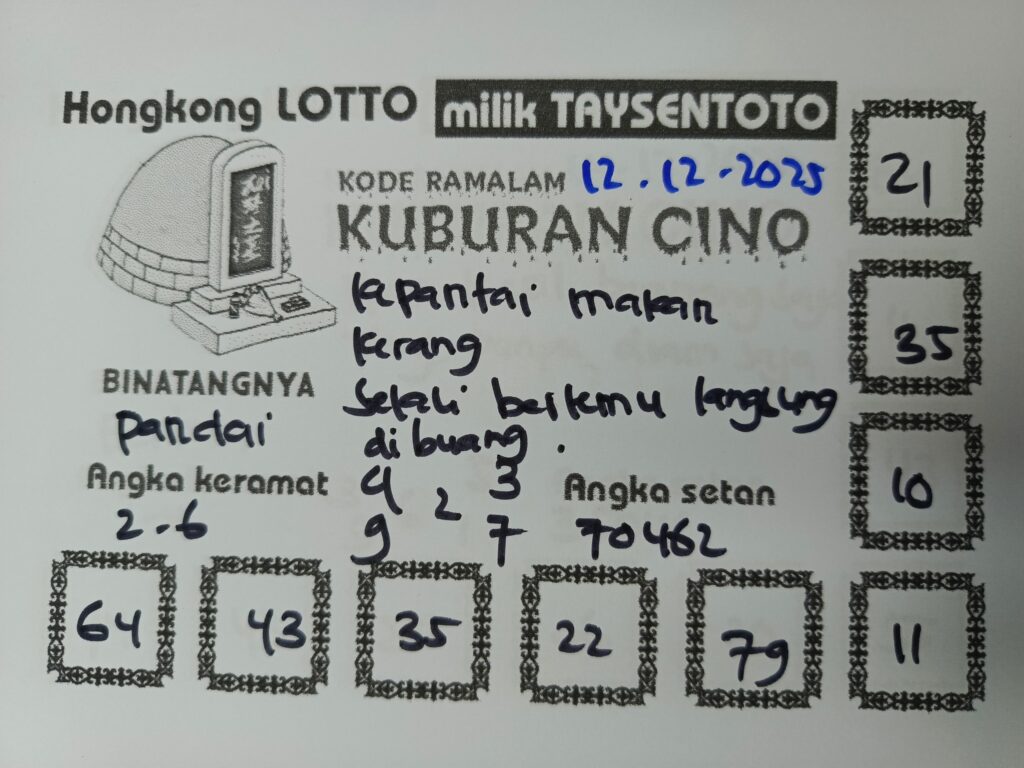 Hongkong LOTTO milik TAYSENTOTO
KODE RAMALAM 12.12-2025
KUBURAN CINO
kepantai makan
kerang
Sekali bertemu langsung
dibuang.
BINATANGNYA
pandai
Angka keramat
2-6
4 3
2
9 7
Angka setan
70462
21
35
10
64 43 35 22 79 11